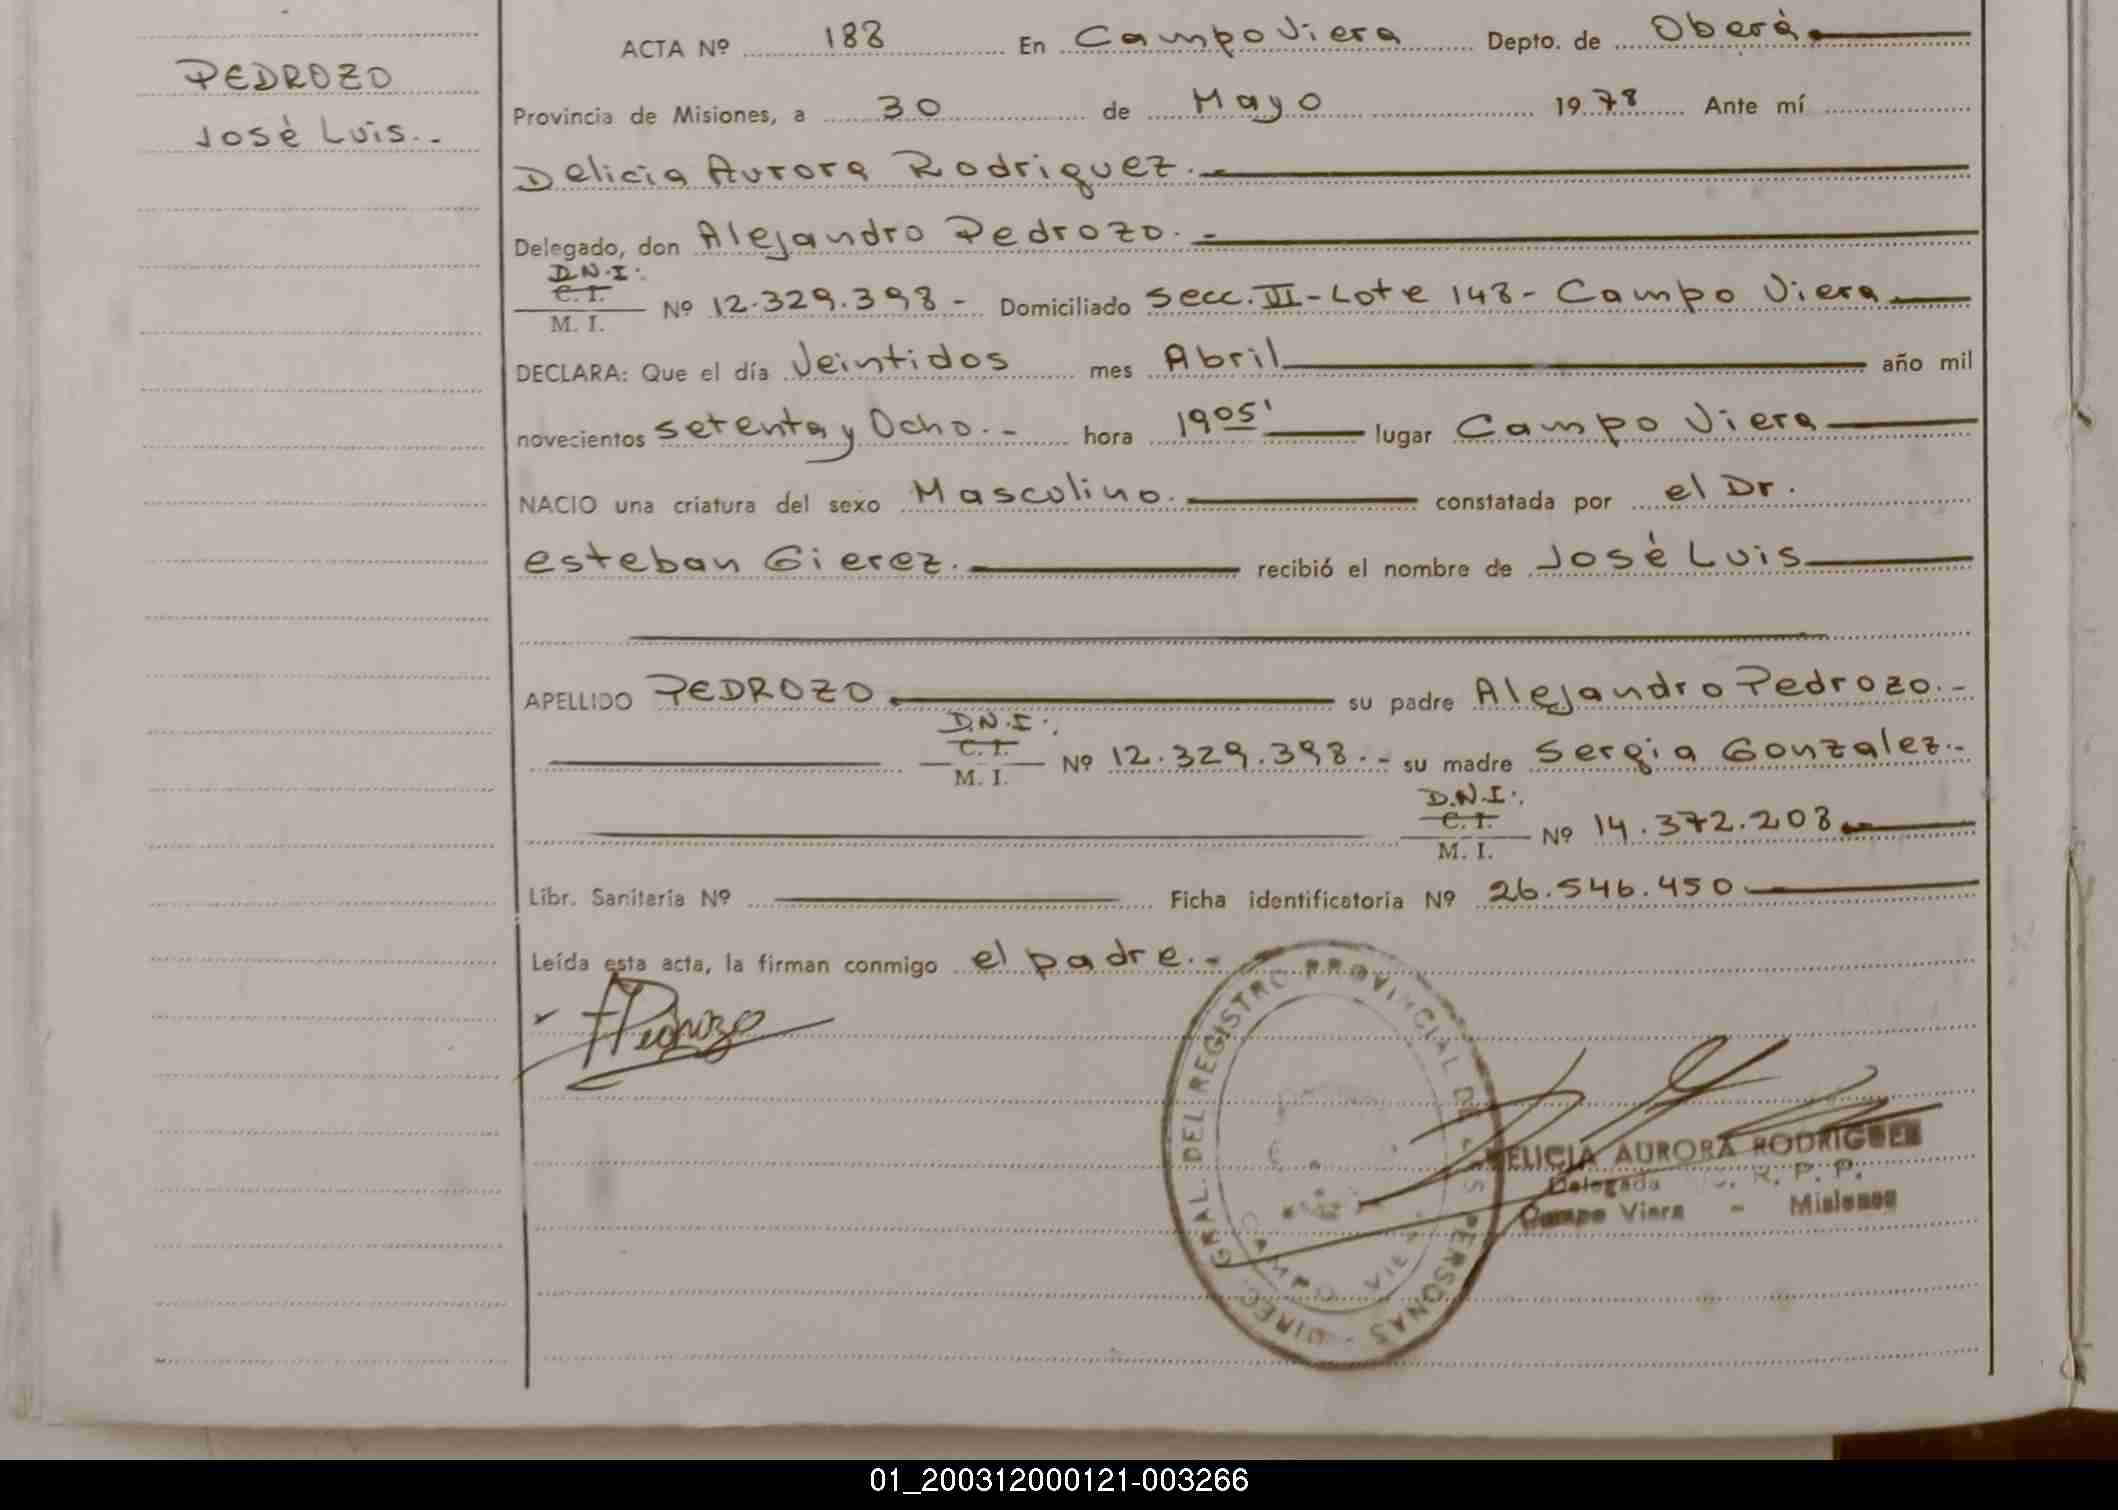 PEDROZO
José Luis.-
ACTA Nº 188 En Campo Viera Depto. de Oberá
Provincia de Misiones, a 30 de Mayo 1978 Ante mí
Delicia Aurora Rodriguez.-
Delegado, don Alejandro Pedrozo.-
D.N.I.
C. I.
M. I. Nº 12.329.398- Domiciliado Secc. II-Lote 148- Campo Viera
DECLARA: Que el día Veintidos mes Abril año mil
novecientos setenta y Ocho.- hora 1905' lugar Campo Viera
NACIO una criatura del sexo Masculino. constatada por el Dr.
Esteban Gierez. recibió el nombre de José Luis
APELLIDO PEDROZO su padre Alejandro Pedrozo.-
D.N.I.
C. I.
M. I. Nº 12.329.398.- su madre Sergia Gonzalez.-
D.N.I.
C. I.
M. I. Nº 14.372.208
Libr. Sanitaria Nº Ficha identificatoria Nº 26.546.450
Leída esta acta, la firman conmigo el padre.-
APedrozo
DIREC. GRAL. DEL REGISTRO PROVINCIAL DE LAS PERSONAS
CAMPO VIERA
DELICIA AURORA RODRIGUEZ
Delegada R. P. P.
Campo Viera - Misiones
01_200312000121-003266